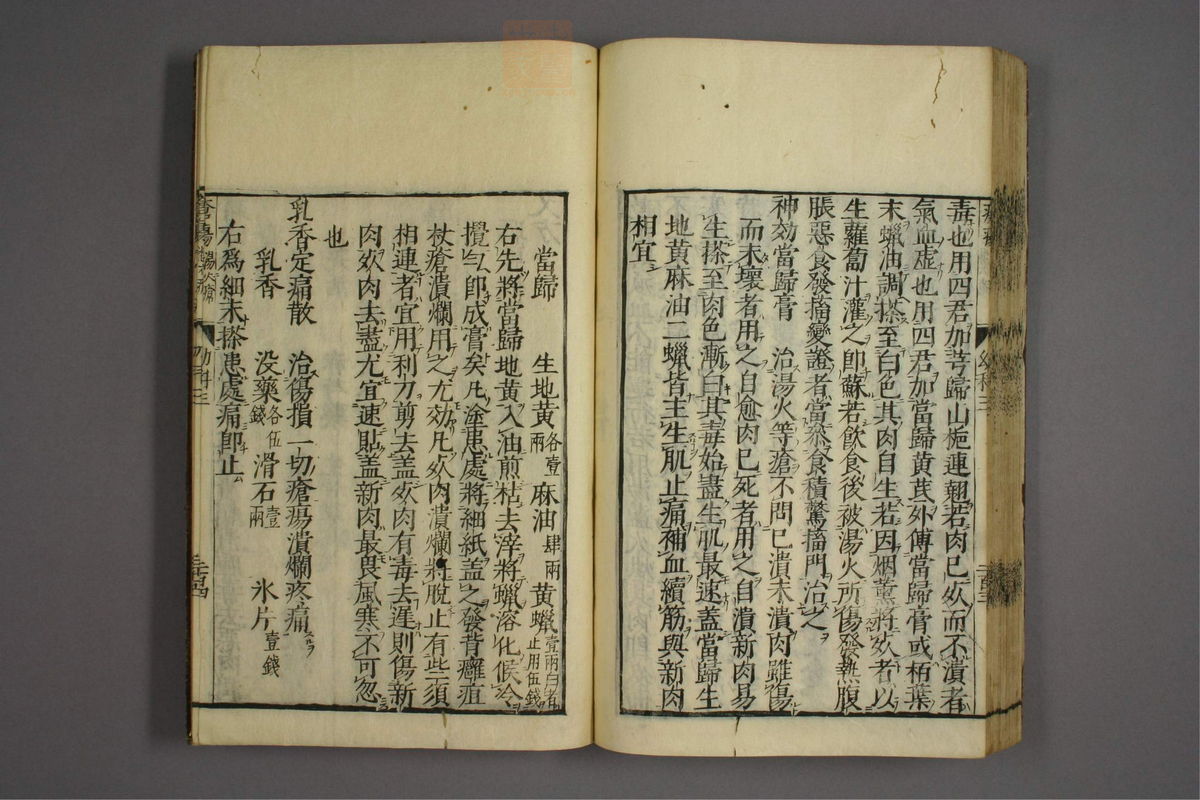 毒也用四君加芎歸山梔連翹若肉已死而不潰者
氣血虛也用四君加當歸黃芪外傅當歸膏或栢葉
末蠟油調搽至白色其肉自生若因烟薰將死者以
生蘿蔔汁灌之即蘇若飲食後被湯火所傷發熱腹
脹惡食發搐變證者當叅食積驚搐門治之
神効當歸膏 治湯火等瘡不問已潰未潰肉雖傷
而未壞者用之自愈肉已死者用之自潰新肉易
生搽至肉色漸白其毒始盡生肌最速蓋當歸生
地黃麻油二蠟皆主生肌止痛補血續筋與新肉
相宜
當歸 生地黃各壹兩 麻油肆兩 黃蠟壹兩白者止用伍錢
右先將當歸地黃入油煎枯去滓將蠟溶化候冷
攪勻即成膏矣凡塗患處將細紙蓋之發背癰疽
杖瘡潰爛用之尤効凡死肉潰爛將脫止有些須
相連者宜用利刀剪去蓋死肉有毒去遲則傷新
肉死肉去盡尤宜速貼蓋新肉最畏風寒不可忽
也
乳香定痛散 治傷損一切瘡瘍潰爛疼痛
乳香 沒藥各伍錢 滑石壹兩 氷片壹錢
右為細末搽患處痛即止